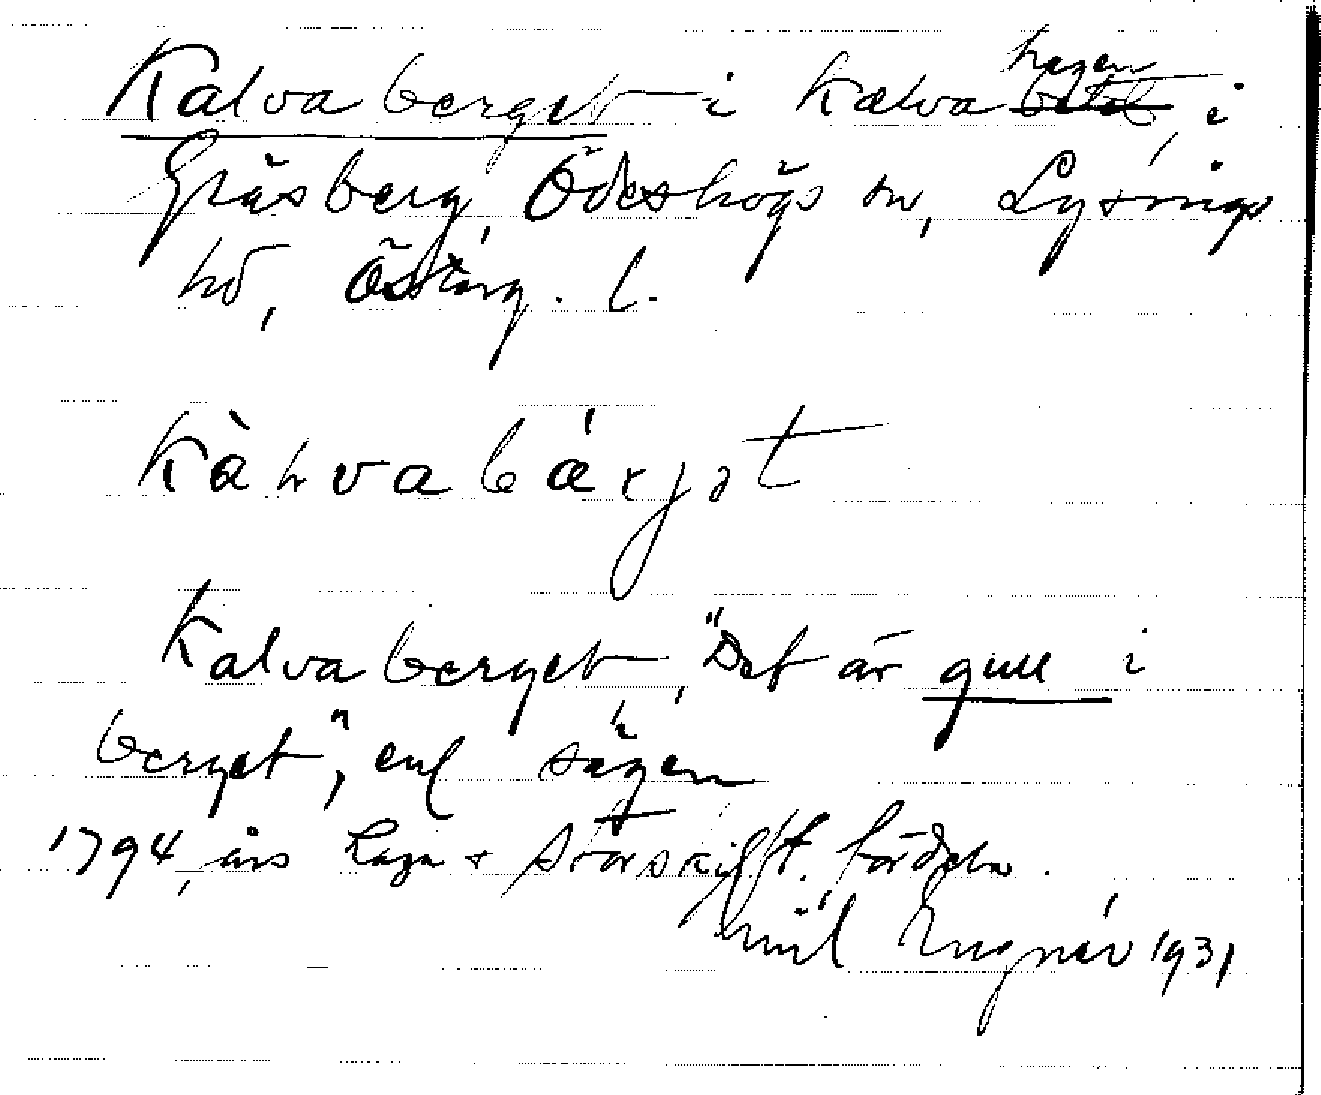 Kalvaberget i Kalva hagen betet, i
Gråsberg, Ödeshögs sn, Lysings
hd, Östérg. l.
Kàhvabárjat
Kalvaberget, "Det är gull i
berget", enl sägen
1794, års Laga + Storskift.
Emil Engnér 1931